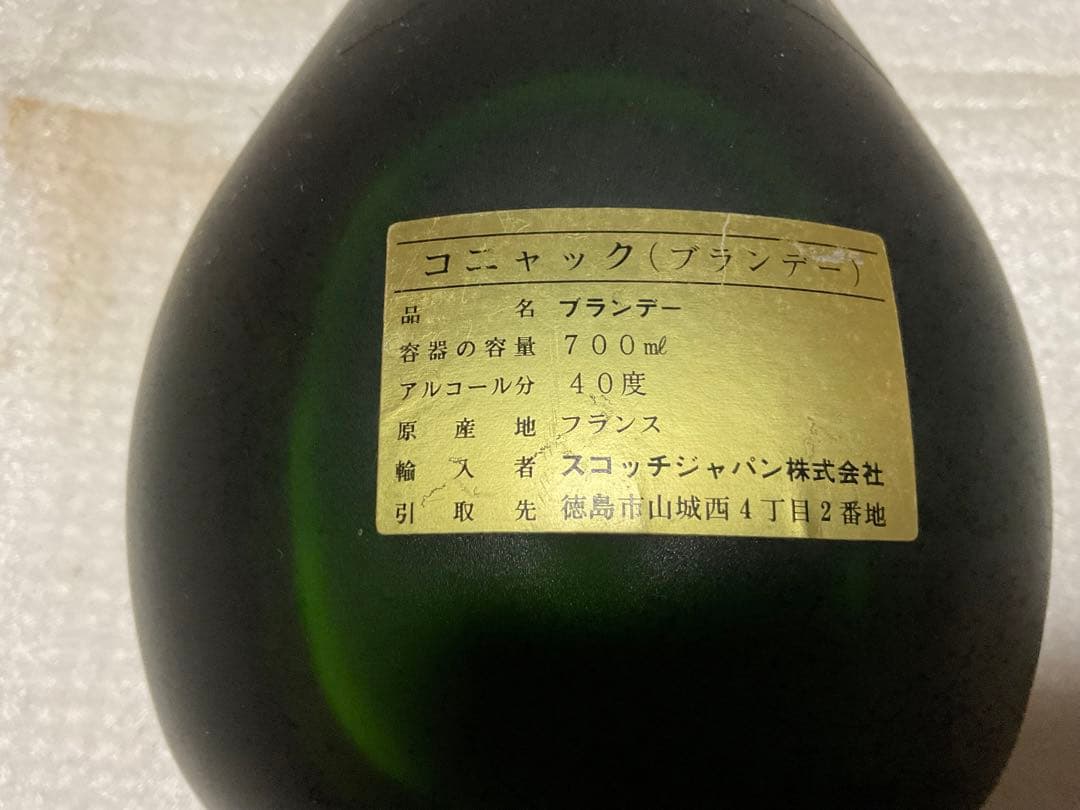 コニャック(ブランデー)
品名 ブランデー
容器の容量 700㎖
アルコール分 40度
原産地 フランス
輸入者 スコッチジャパン株式会社
引取先 徳島市山城西4丁目2番地